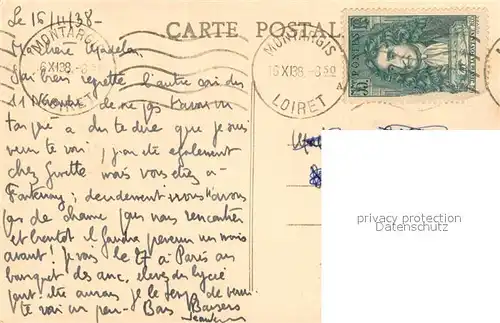 Le 16/11/38-
CARTE POSTALE
MONTARGIS
16 XI 38
LOIRET
MONTARGIS
16 XI 38 -8 50
LOIRET
A
POSTES
Ma chère
J'ai bien regretté l'autre soir du
11 Novembre de ne pas t'avoir vu
on a du te dire que je suis
venu te voir, j'ai été également
chez Ginette mais vous étiez à
Fontenay; décidement nous n'avons
pas de chance pour nous rencontrer
et bientôt il faudra prévenir un mois
avant! Je vais le 27 à Paris au
banquet des anc. élèves du lycée
peut être aurai je le temps de venir
te voir un peu- Bons Baisers
privacy protection
Datenschutz